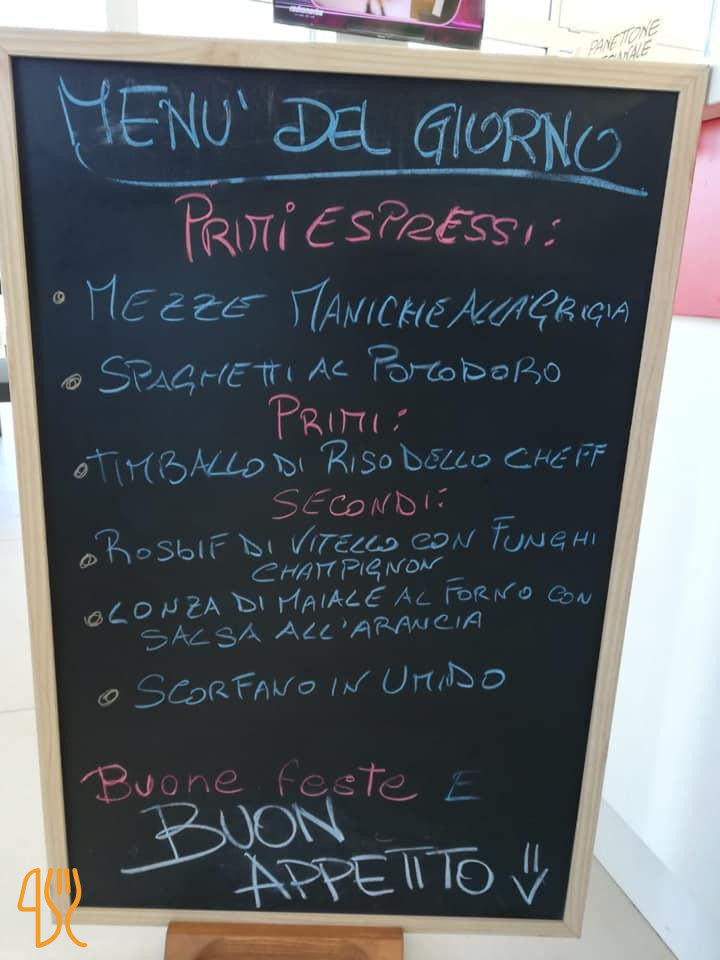 PANETTONE
MENU' DEL GIORNO
PRIMI ESPRESSI:
MEZZE MANICHE ALLA GRIGIA
SPAGHETTI AL POMODORO
PRIMI:
TIMBALLO DI RISO DELLO CHEFF
SECONDI:
ROSBIF DI VITELLO CON FUNGHI
CHAMPIGNON
LONZA DI MAIALE AL FORNO CON
SALSA ALL'ARANCIA
SCORFANO IN UMIDO
Buone feste E
BUON
APPETITO